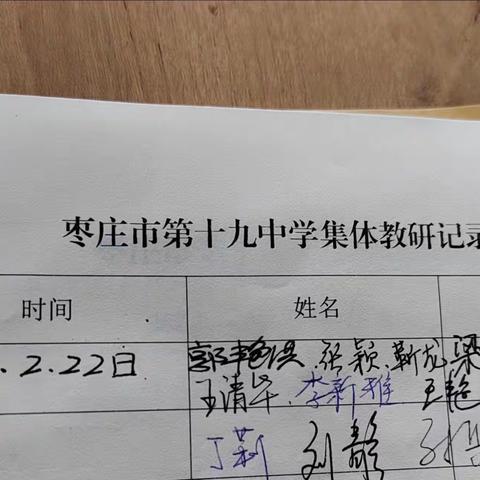 枣庄市第十九中学集体教研记录
时间 姓名
.2.22日 郭艳洪、张颖、靳龙、梁
王清华、李新雅 王艳
丁莉 刘静